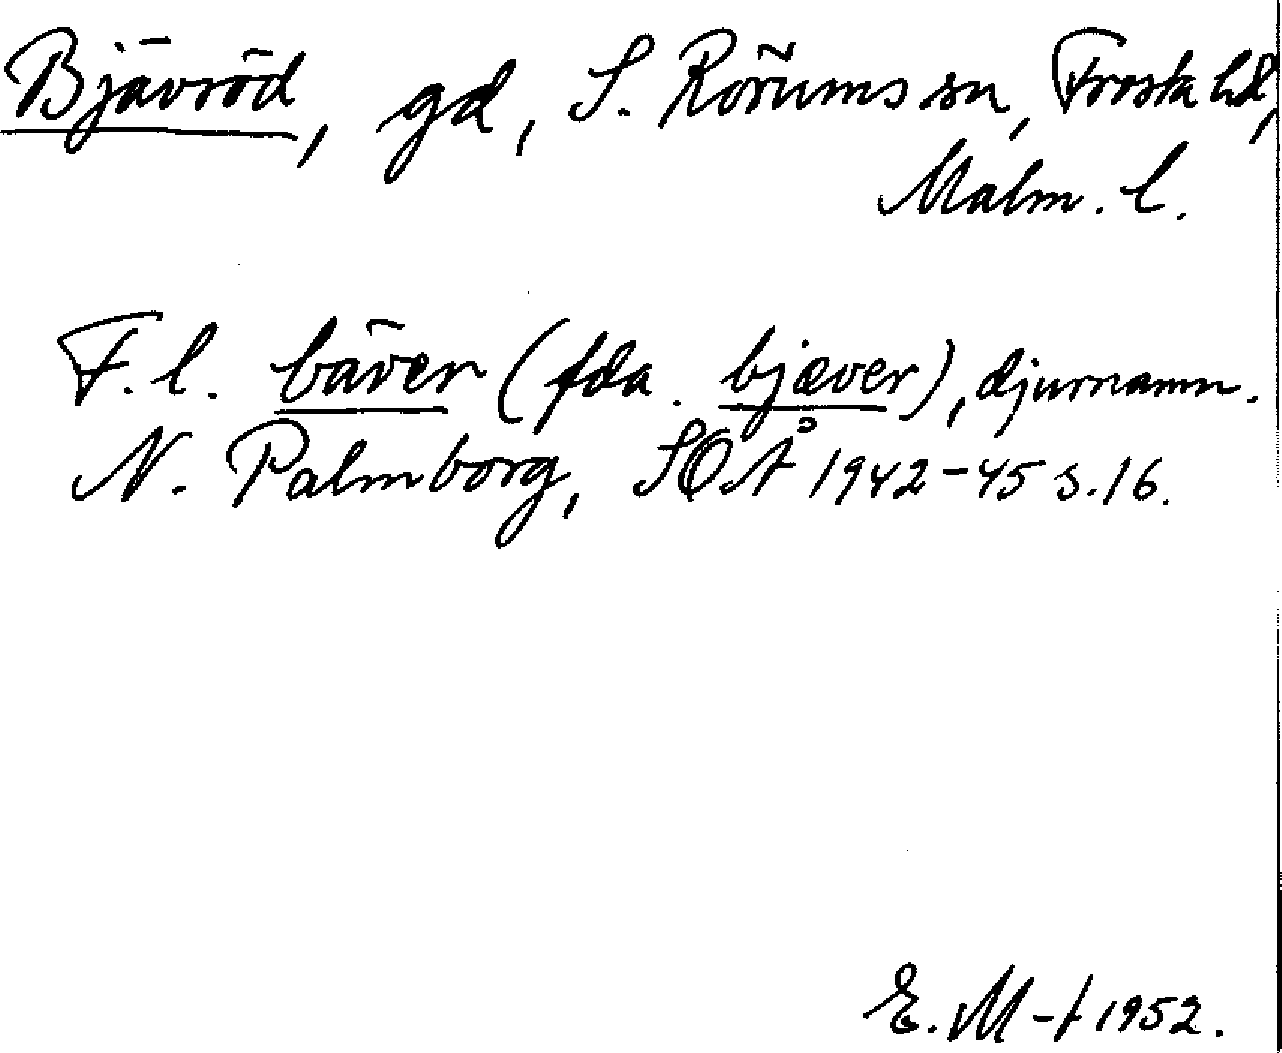 Bjävröd, gd, S. Rörums sn, Frosta hd,
Malm. l.
F. l. bäver (fda. bjæver), djurnamn.
N. Palmborg, SOÅ 1942-45 s. 16.
E. M-t 1952.